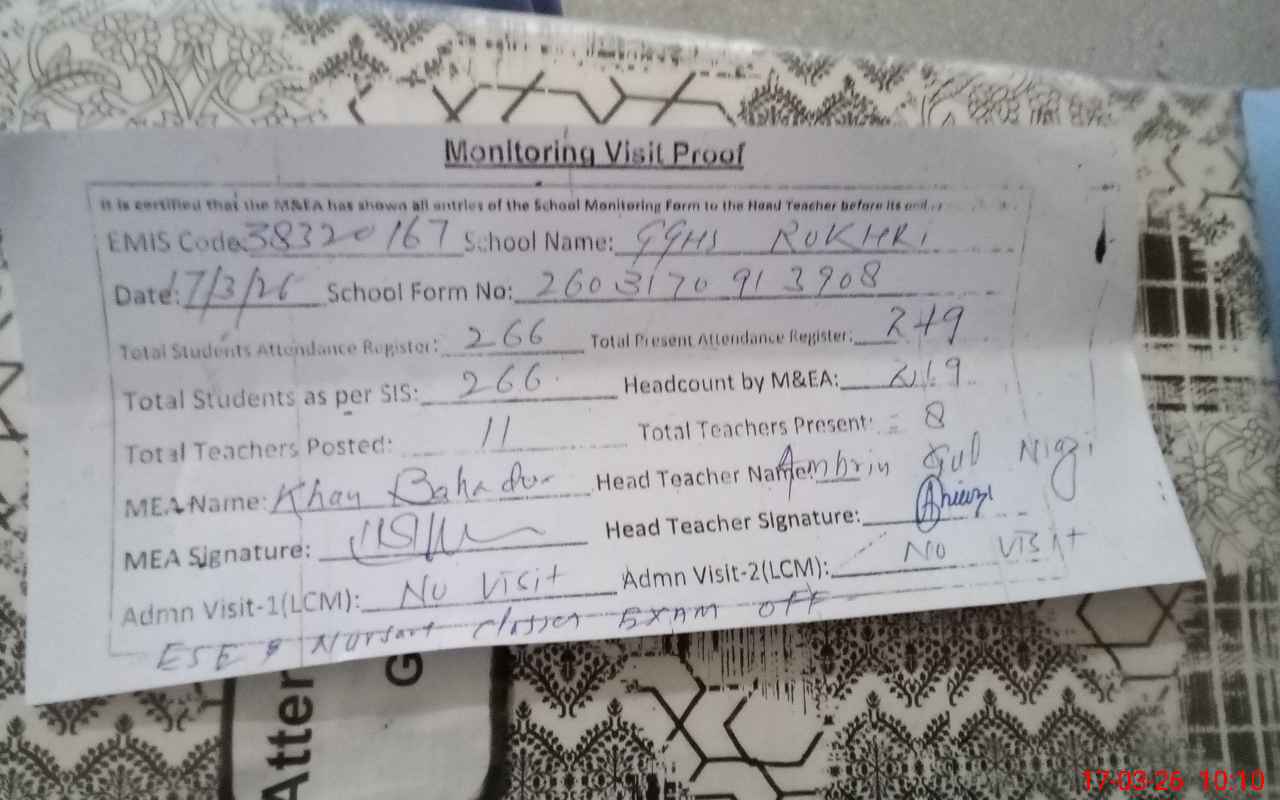 Monitoring Visit Proof
It is certified that the M&EA has shown all entries of the School Monitoring Form to the Head Teacher before its
EMIS Code: 38320167 School Name: GGHS ROKHRI
Date: 17/3/26 School Form No: 260317091 3908
Total Students Attendance Register: 266 Total Present Attendance Register: 249
Total Students as per SIS: 266 Headcount by M&EA:
Total Teachers Posted: 11 Total Teachers Present: = 8
MEA Name: Khan Bahadur Head Teacher Name: Ambrin Gul Niazi
MEA Signature: Head Teacher Signature:
Admn Visit-1(LCM): No Visit Admn Visit-2(LCM): No Visit
ESE classes EXAM OFF
Atter
G
17-03-26 10:10